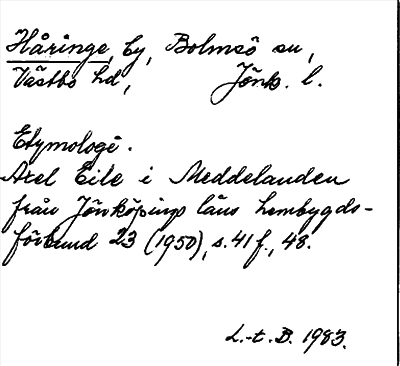 Håringe, by, Bolmsö sn,
Västbo hd, Jönk. l.
Etymologi.
Axel Eile i Meddelanden
från Jönköpings läns hembygds-
förbund 23 (1950), s. 41 f., 48.
L.-t. B. 1983.